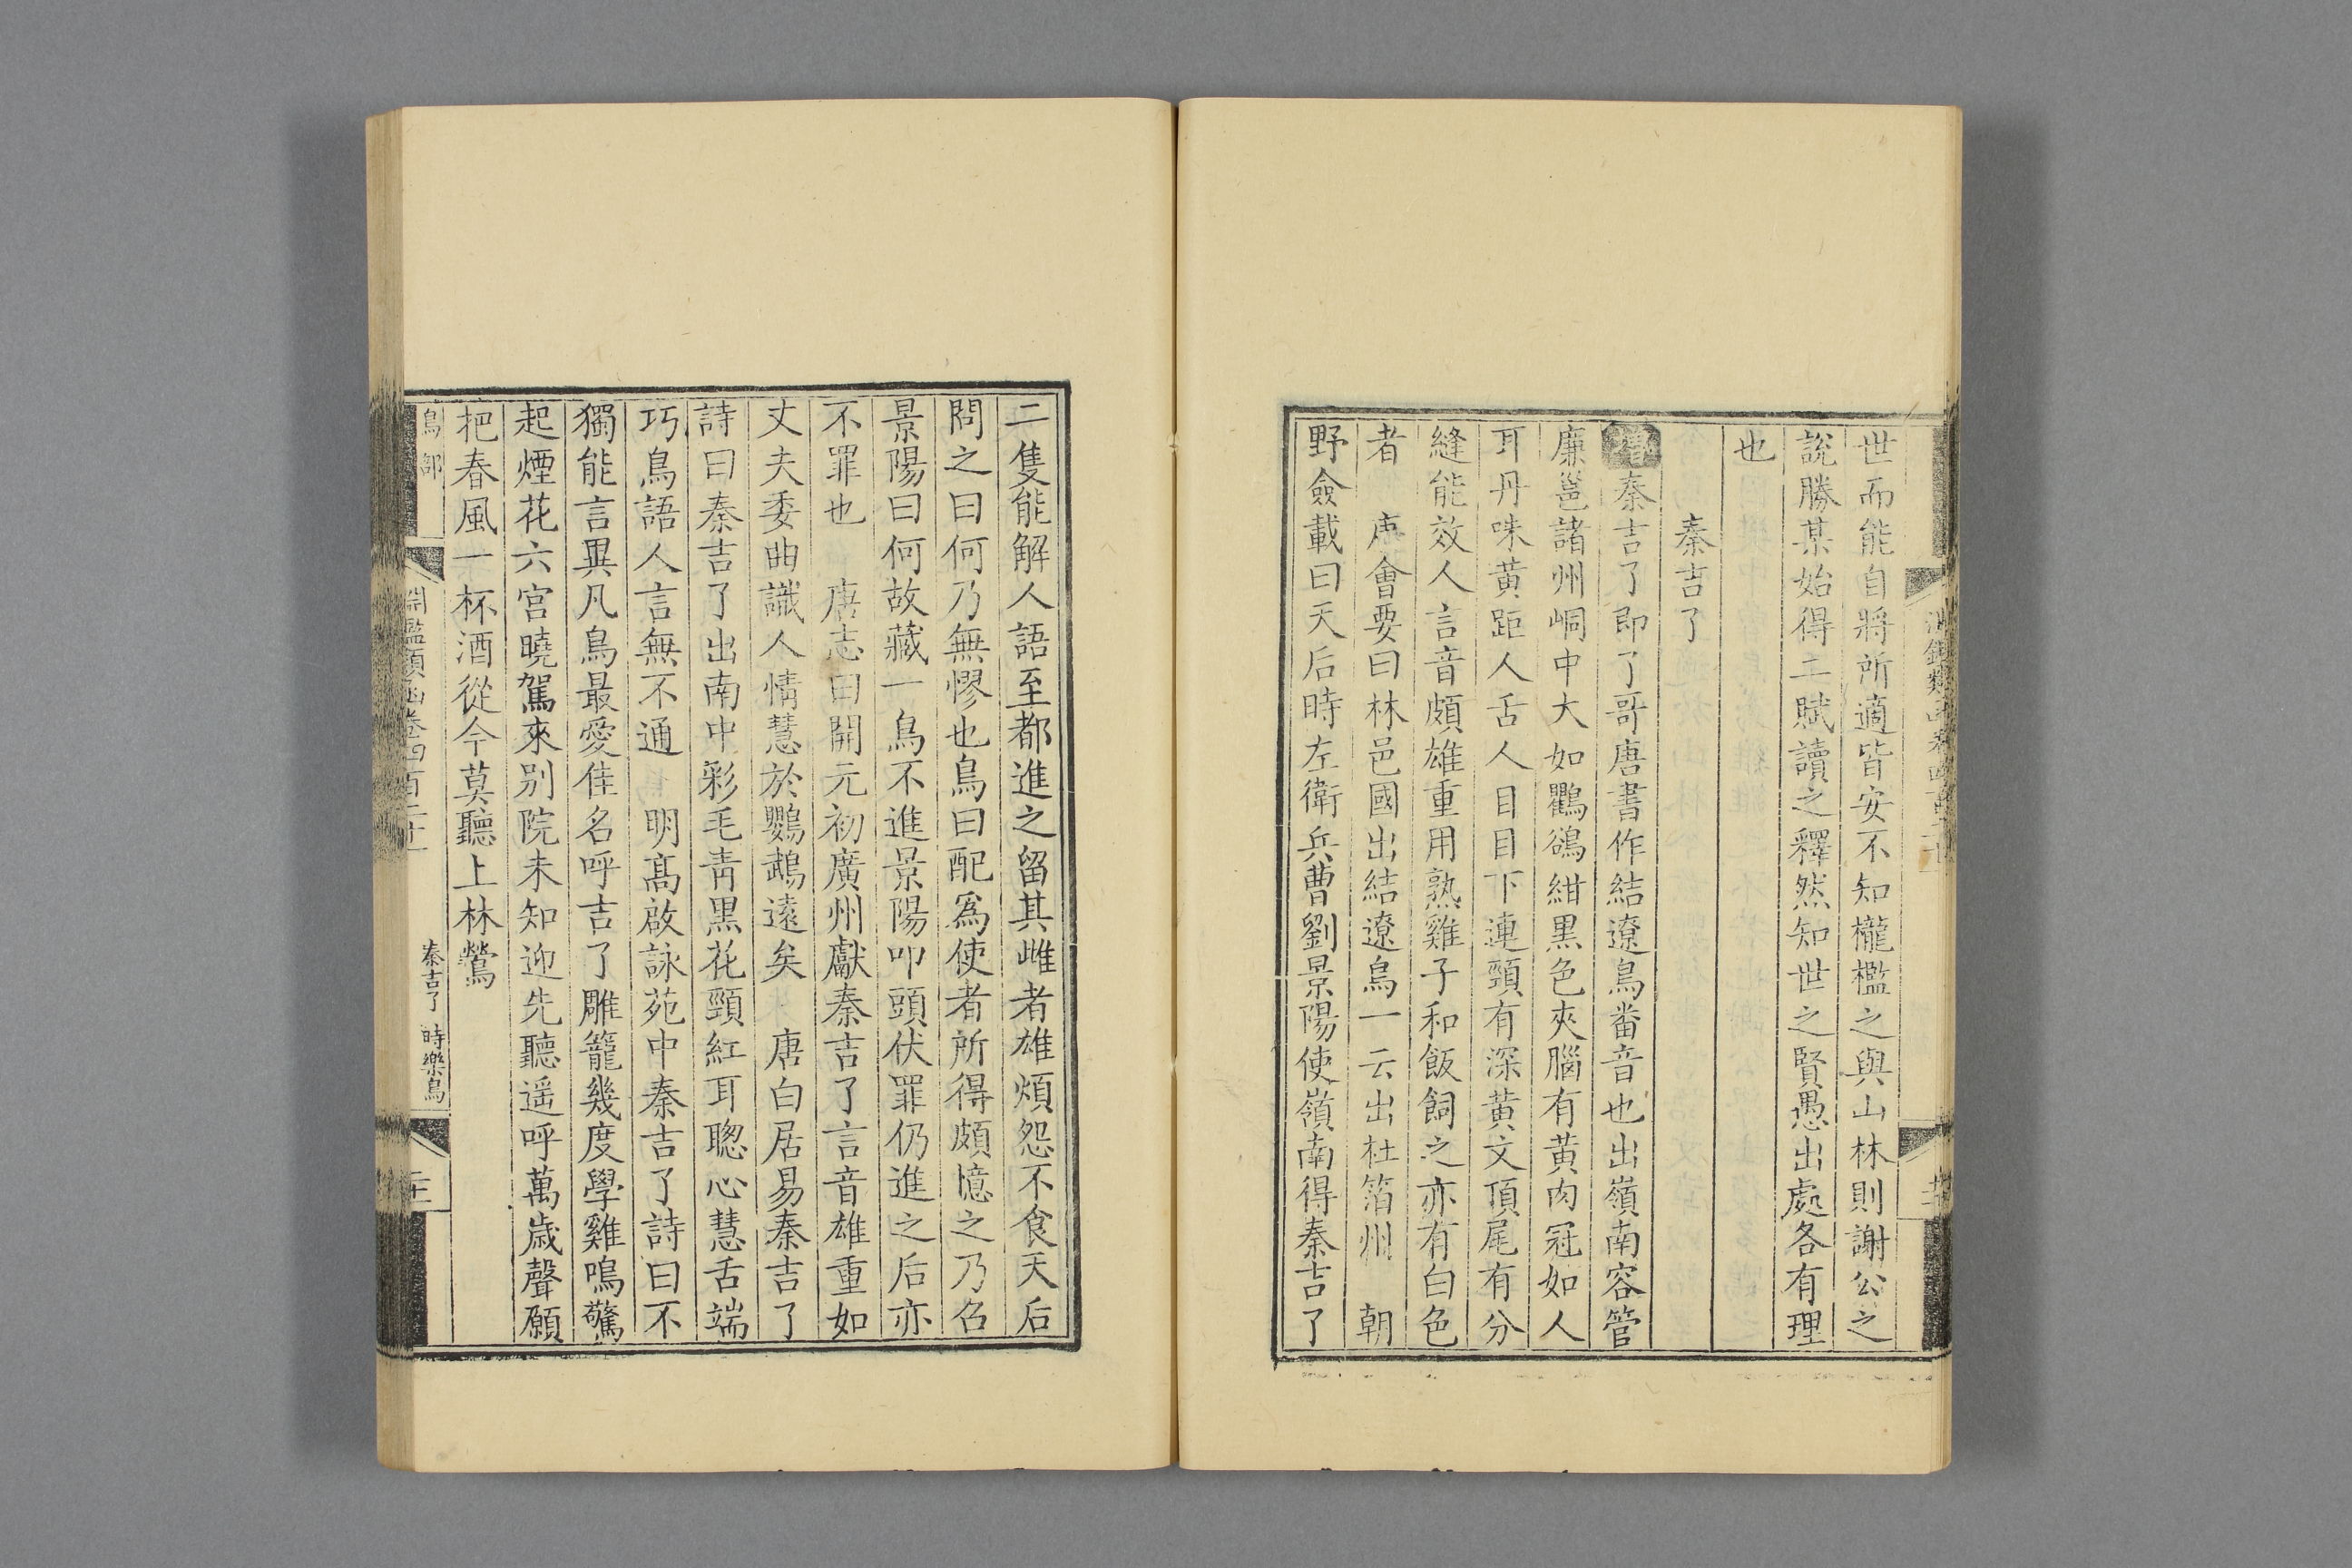 世而能自將所適皆安不知櫳檻之與山林則謝公之
說勝某始得二賦讀之釋然知世之賢愚出處各有理
也
秦吉了
增秦吉了即了哥唐書作結遼鳥畨音也出嶺南容管
廉邕諸州峒中大如鸜鵒紺黒色夾腦有黄肉冠如人
耳丹咮黄距人舌人目目下連頸有深黄文頂尾有分
縫能效人言音頗雄重用熟雞子和飯飼之亦有白色
者 唐會要曰林邑國出結遼鳥一云出杜箔州 朝
野僉載曰天后時左衛兵曹劉景陽使嶺南得秦吉了
二隻能解人語至都進之留其雌者雄煩怨不食天后
問之曰何乃無憀也鳥曰配爲使者所得頗憶之乃召
景陽曰何故藏一鳥不進景陽叩頭伏罪仍進之后亦
不罪也 唐志曰開元初廣州獻秦吉了言音雄重如
丈夫委曲識人情慧於鸚鵡遠矣 唐白居易秦吉了
詩曰秦吉了出南中彩毛青黒花頸紅耳聦心慧舌端
巧鳥語人言無不通 明髙啟詠苑中秦吉了詩曰不
獨能言異凡鳥最愛佳名呼吉了雕籠幾度學雞鳴驚
起煙花六宮曉駕來别院未知迎先聽遥呼萬歳聲願
把春風一杯酒從今莫聽上林鶯
鳥部
淵鑑類函卷四百二十
秦吉了 時樂鳥